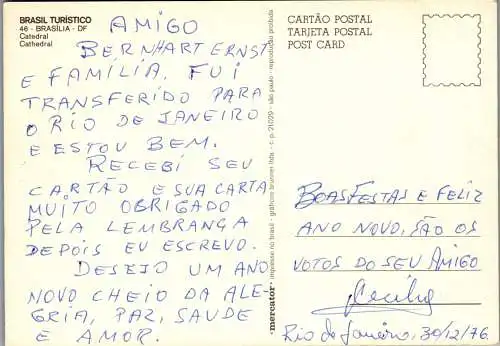 BRASIL TURÍSTICO
46 - BRASÍLIA - DF
Catedral
Cathedral
AMIGO
BERNHART ERNST
E FAMÍLIA. FUI
TRANSFERIDO PARA
O RIO DE JANEIRO
E ESTOU BEM.
RECEBI SEU
CARTÃO E SUA CARTA
MUITO OBRIGADO
PELA LEMBRANGA
DEPOIS EU ESCREVO.
DESEJO UM ANO
NOVO CHEIO DA ALE-
GRIA, PAZ, SAUDE
E AMOR.
mercator - impresso no brasil - gráficos brunner ltda. - c. p. 21.029 - são paulo - reprodução proibida
CARTÃO POSTAL
TARJETA POSTAL
POST CARD
BOAS FESTAS E FELIZ
ANO NOVO, SÃO OS
VOTOS DO SEU AMIGO
Rio de Janeiro, 30/12/76.